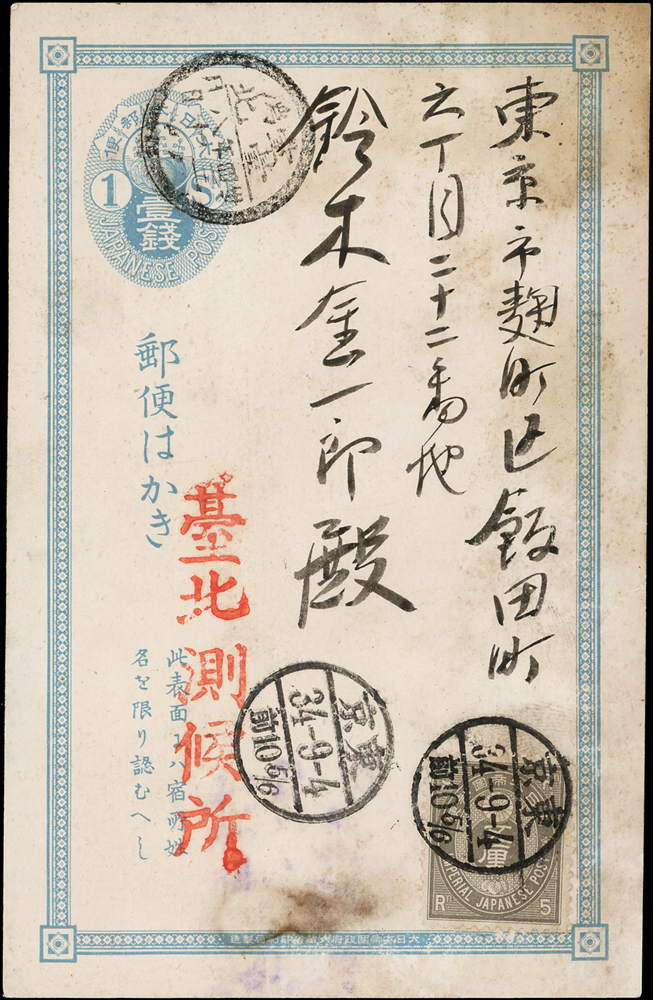 東京市麹町区飯田町
六丁目二十二番地
鈴木金一郎殿
大日本郵便
1 S
壹錢
JAPANESE POST
郵便はかき
臺北測候所
此表面ニハ宿所姓
名を限り認むへし
東京
34-9-4
前10 5/6
東京
34-9-4
前10 5/6
厘
IMPERIAL JAPANESE POST
Rⁿ 5